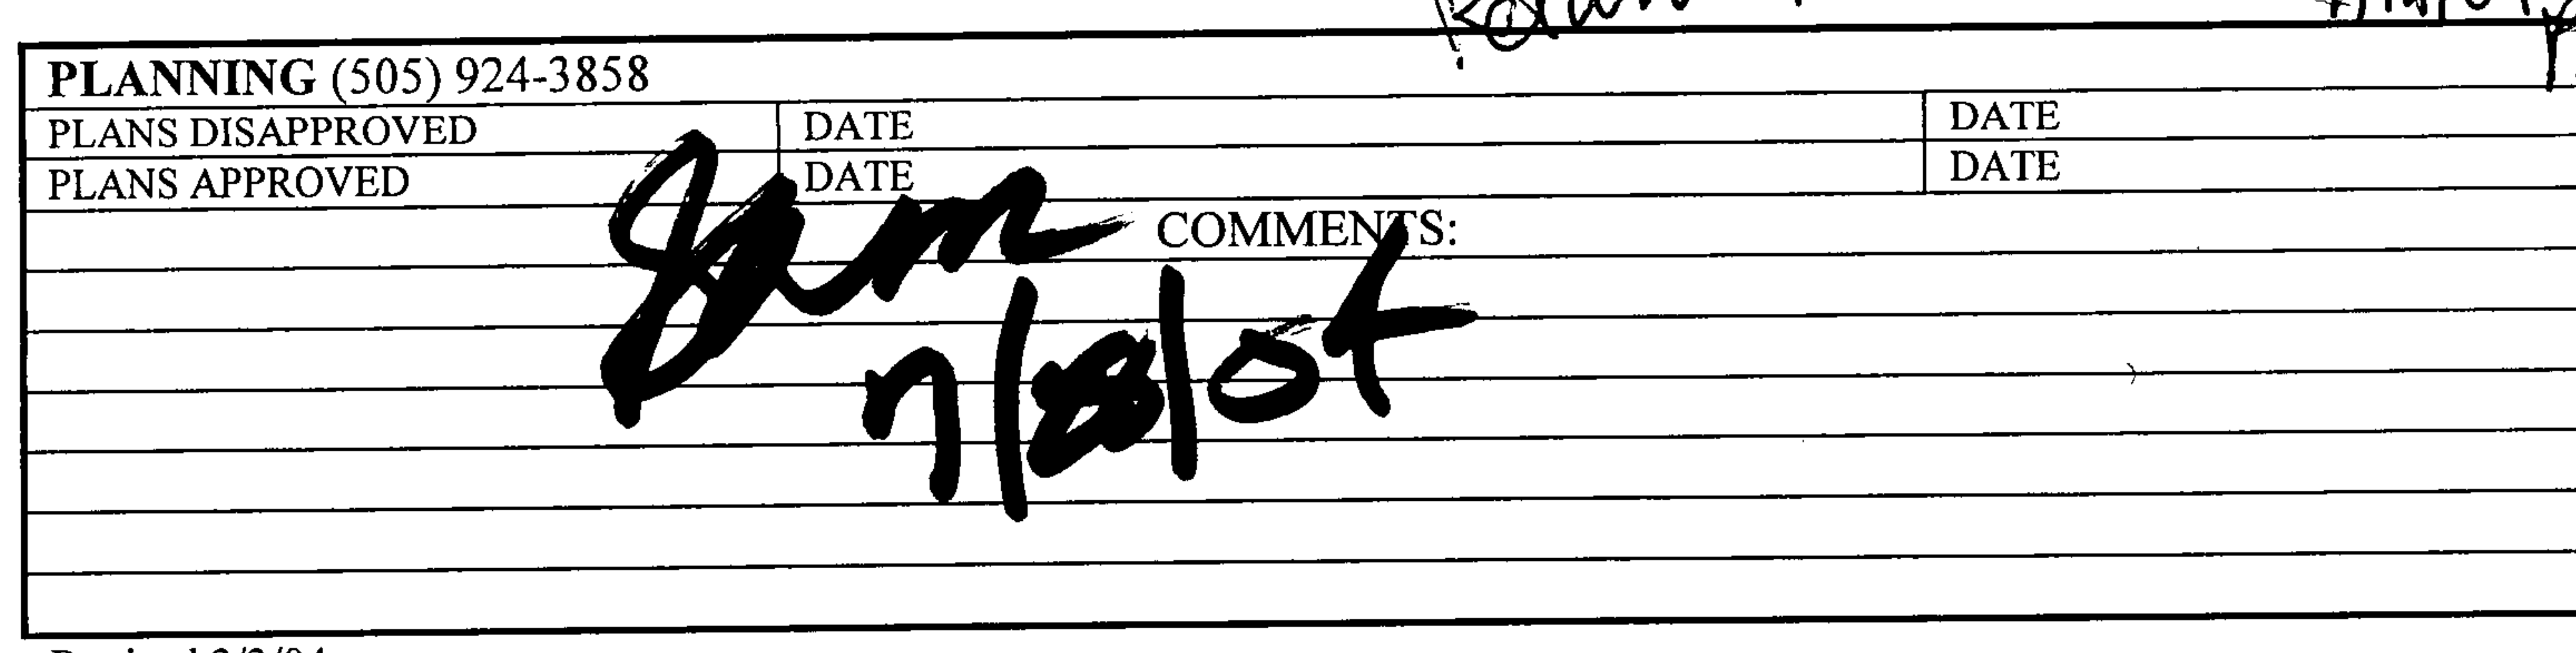 PLANNING (505) 924-3858
PLANS DISAPPROVED DATE DATE
PLANS APPROVED DATE DATE
COMMENTS:
7/8/04